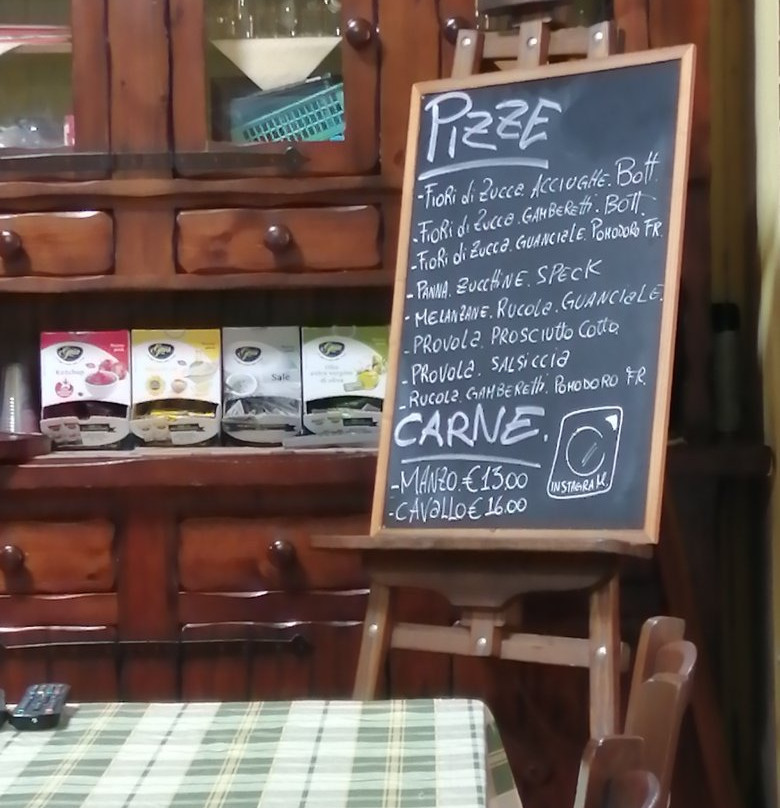 PIZZE
-FIORI di ZUCCA. ACCIUGHE. BOTT.
-FIORI di ZUCCA. GAMBERETTI. BOTT.
-FIORI di ZUCCA. GUANCIALE. POMODORO FR.
-PANNA. ZUCCHINE. SPECK
-MELANZANE. RUCOLA. GUANCIALE.
-PROVOLA. PROSCIUTTO COTTO
-PROVOLA. SALSICCIA
-RUCOLA. GAMBERETTI. POMODORO FR.
CARNE.
-MANZO. € 13.00
-CAVALLO € 16.00
INSTAGRAM.
Ketchup
Sale
Olio
extra vergine
di oliva